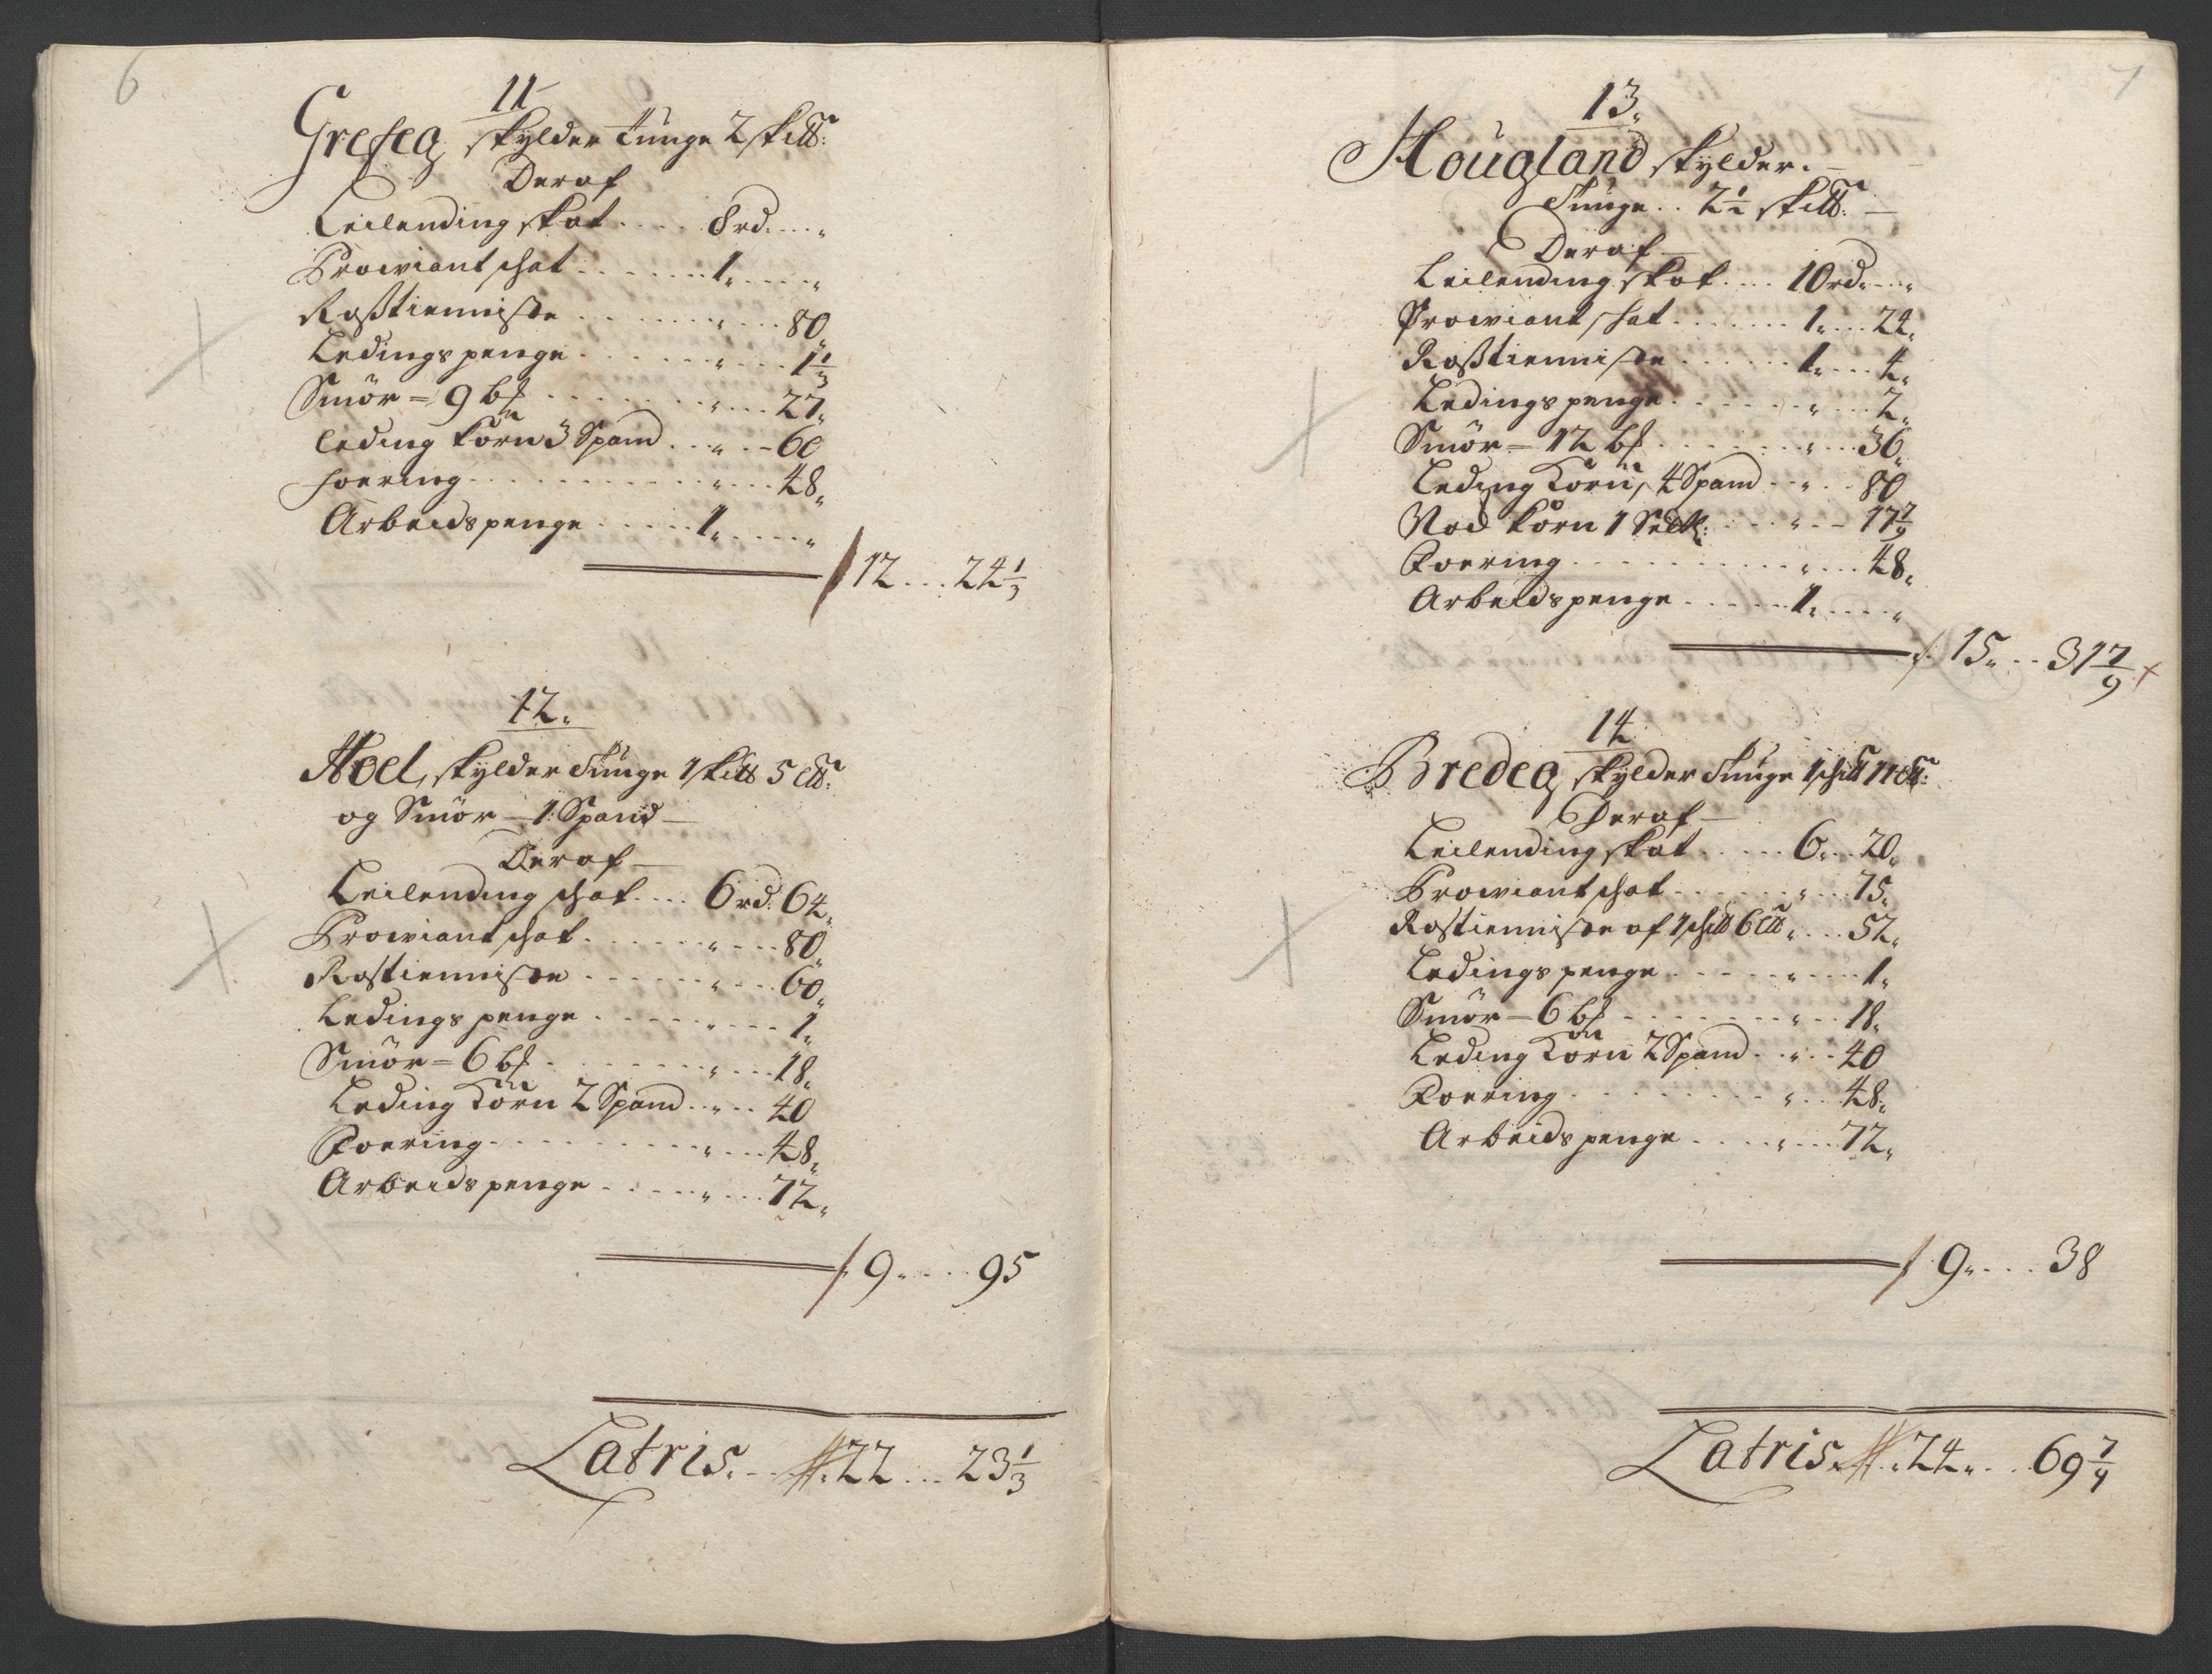 6
11
Grefeg skylder tunge 2 skill:
Deraf
Leilending skat .... 8 rd. .... „
Proviant schat ....... 1„ .... „
Rosstienniste ....... „ ... 80„
Ledings penge ....... „ ... 1 1/3
Smör = 9 bf ....... „ ... 27„
leding korn 3 Spand ... „ - 60
foering ........... „ ... 48„
Arbeids penge ..... 1„ .... „
12 ... 24 1/3
12.
Hoel, skylder tunge 1 skill 5 ltt:
og Smör - 1 Spand
Deraf
Leilending schat .... 6 rd. 64„
Proviant schat ....... „ ... 80„
Rostienniste ....... „ ... 60„
Ledings penge ...... „ ... 1„
Smör = 6 bf ....... „ ... 18„
Leding Korn 2 Spand ... „ .. 40
Foering .......... „ ... 48„
Arbeids penge ..... „ ... 72„
9„ ... 95
Latris. .. 22 ... 23 1/3
7
13.
Hougland skylder.
Tunge .. 2 1/2 skill:
Deraf
Leilending skat .... 10 rd. ... „
Proviant schat ....... 1„ ... 24„
Rosstienniste ...... 1„ ... 4„
Ledings penge ...... „ ... 2„
Smör = 12 bf ....... „ ... 36„
Leding Korn, 4 Spand .. „ .. 80
Nod korn 1 Settl: .... „ - 17 7/9
Foering .......... „ ... 48„
Arbeids penge ..... 1„ .... „
15„ .. 31 7/9
14
Bredeg skylder Tunge 1 schill 11 ltt:
Deraf
Leilending skat ..... 6„ .. 20„
Proviant schat ....... „ ... 75„
Rostienniste af 1 schill 6 ltt „ ... 52„
Ledings penge ...... „ ... 1„
Smör - 6 bf ....... „ .. 18„
Leding Korn 2 Spand .. „ .. 40
Foering .......... „ ... 48„
Arbeids penge ..... „ ... 72„
9„ ... 38
Latris. .. 24„ .. 69 7/9